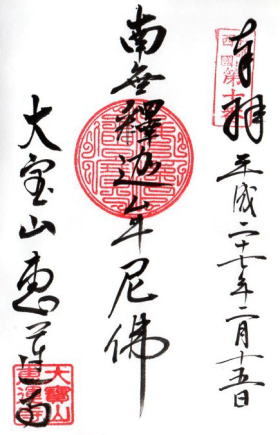 奉拝
平成二十七年二月十五日
南無釋迦牟尼佛
大宝山恵蓮寺
西國第十
大寶山